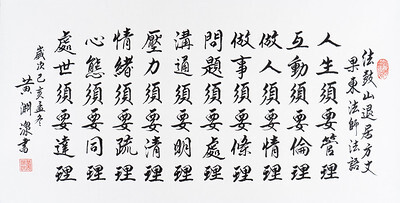 法鼓山退居方丈
果東法師法語
人生須要管理
互動須要倫理
做人須要情理
做事須要條理
問題須要處理
溝通須要明理
壓力須要清理
情緒須要疏理
心態須要同理
處世須要達理
歲次己亥孟冬
黃淵澂書